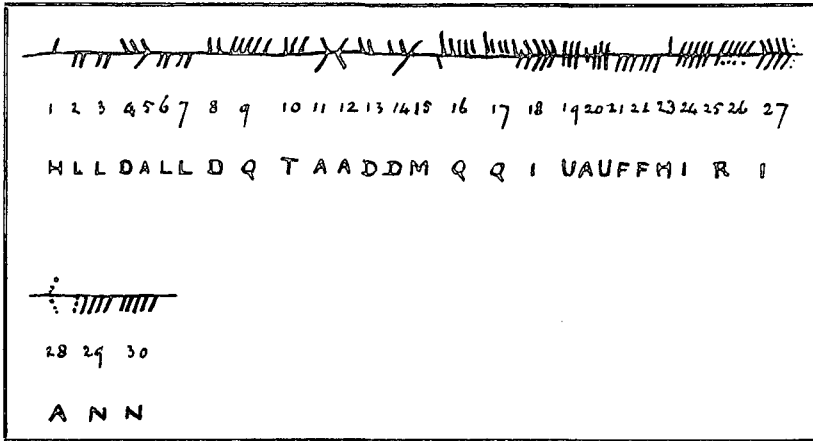 1 2 3 4 5 6 7 8 9 10 11 12 13 14 15 16 17 18 19 20 21 22 23 24 25 26 27
H L L D A L L D Q T A A D D M Q Q I U A U F F H I R I
28 29 30
A N N